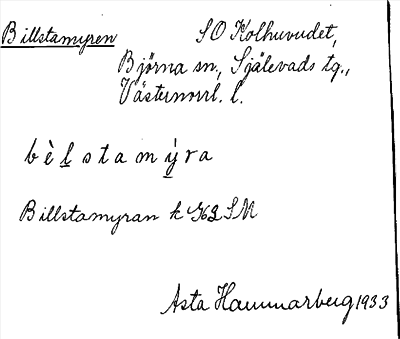 Billstamyren SO Kolhuvudet,
Björna sn., Själevads tg.,
Västernorrl. l.
bèlstamýra
Billstamyran k 562 SM
Asta Hammarberg 1933